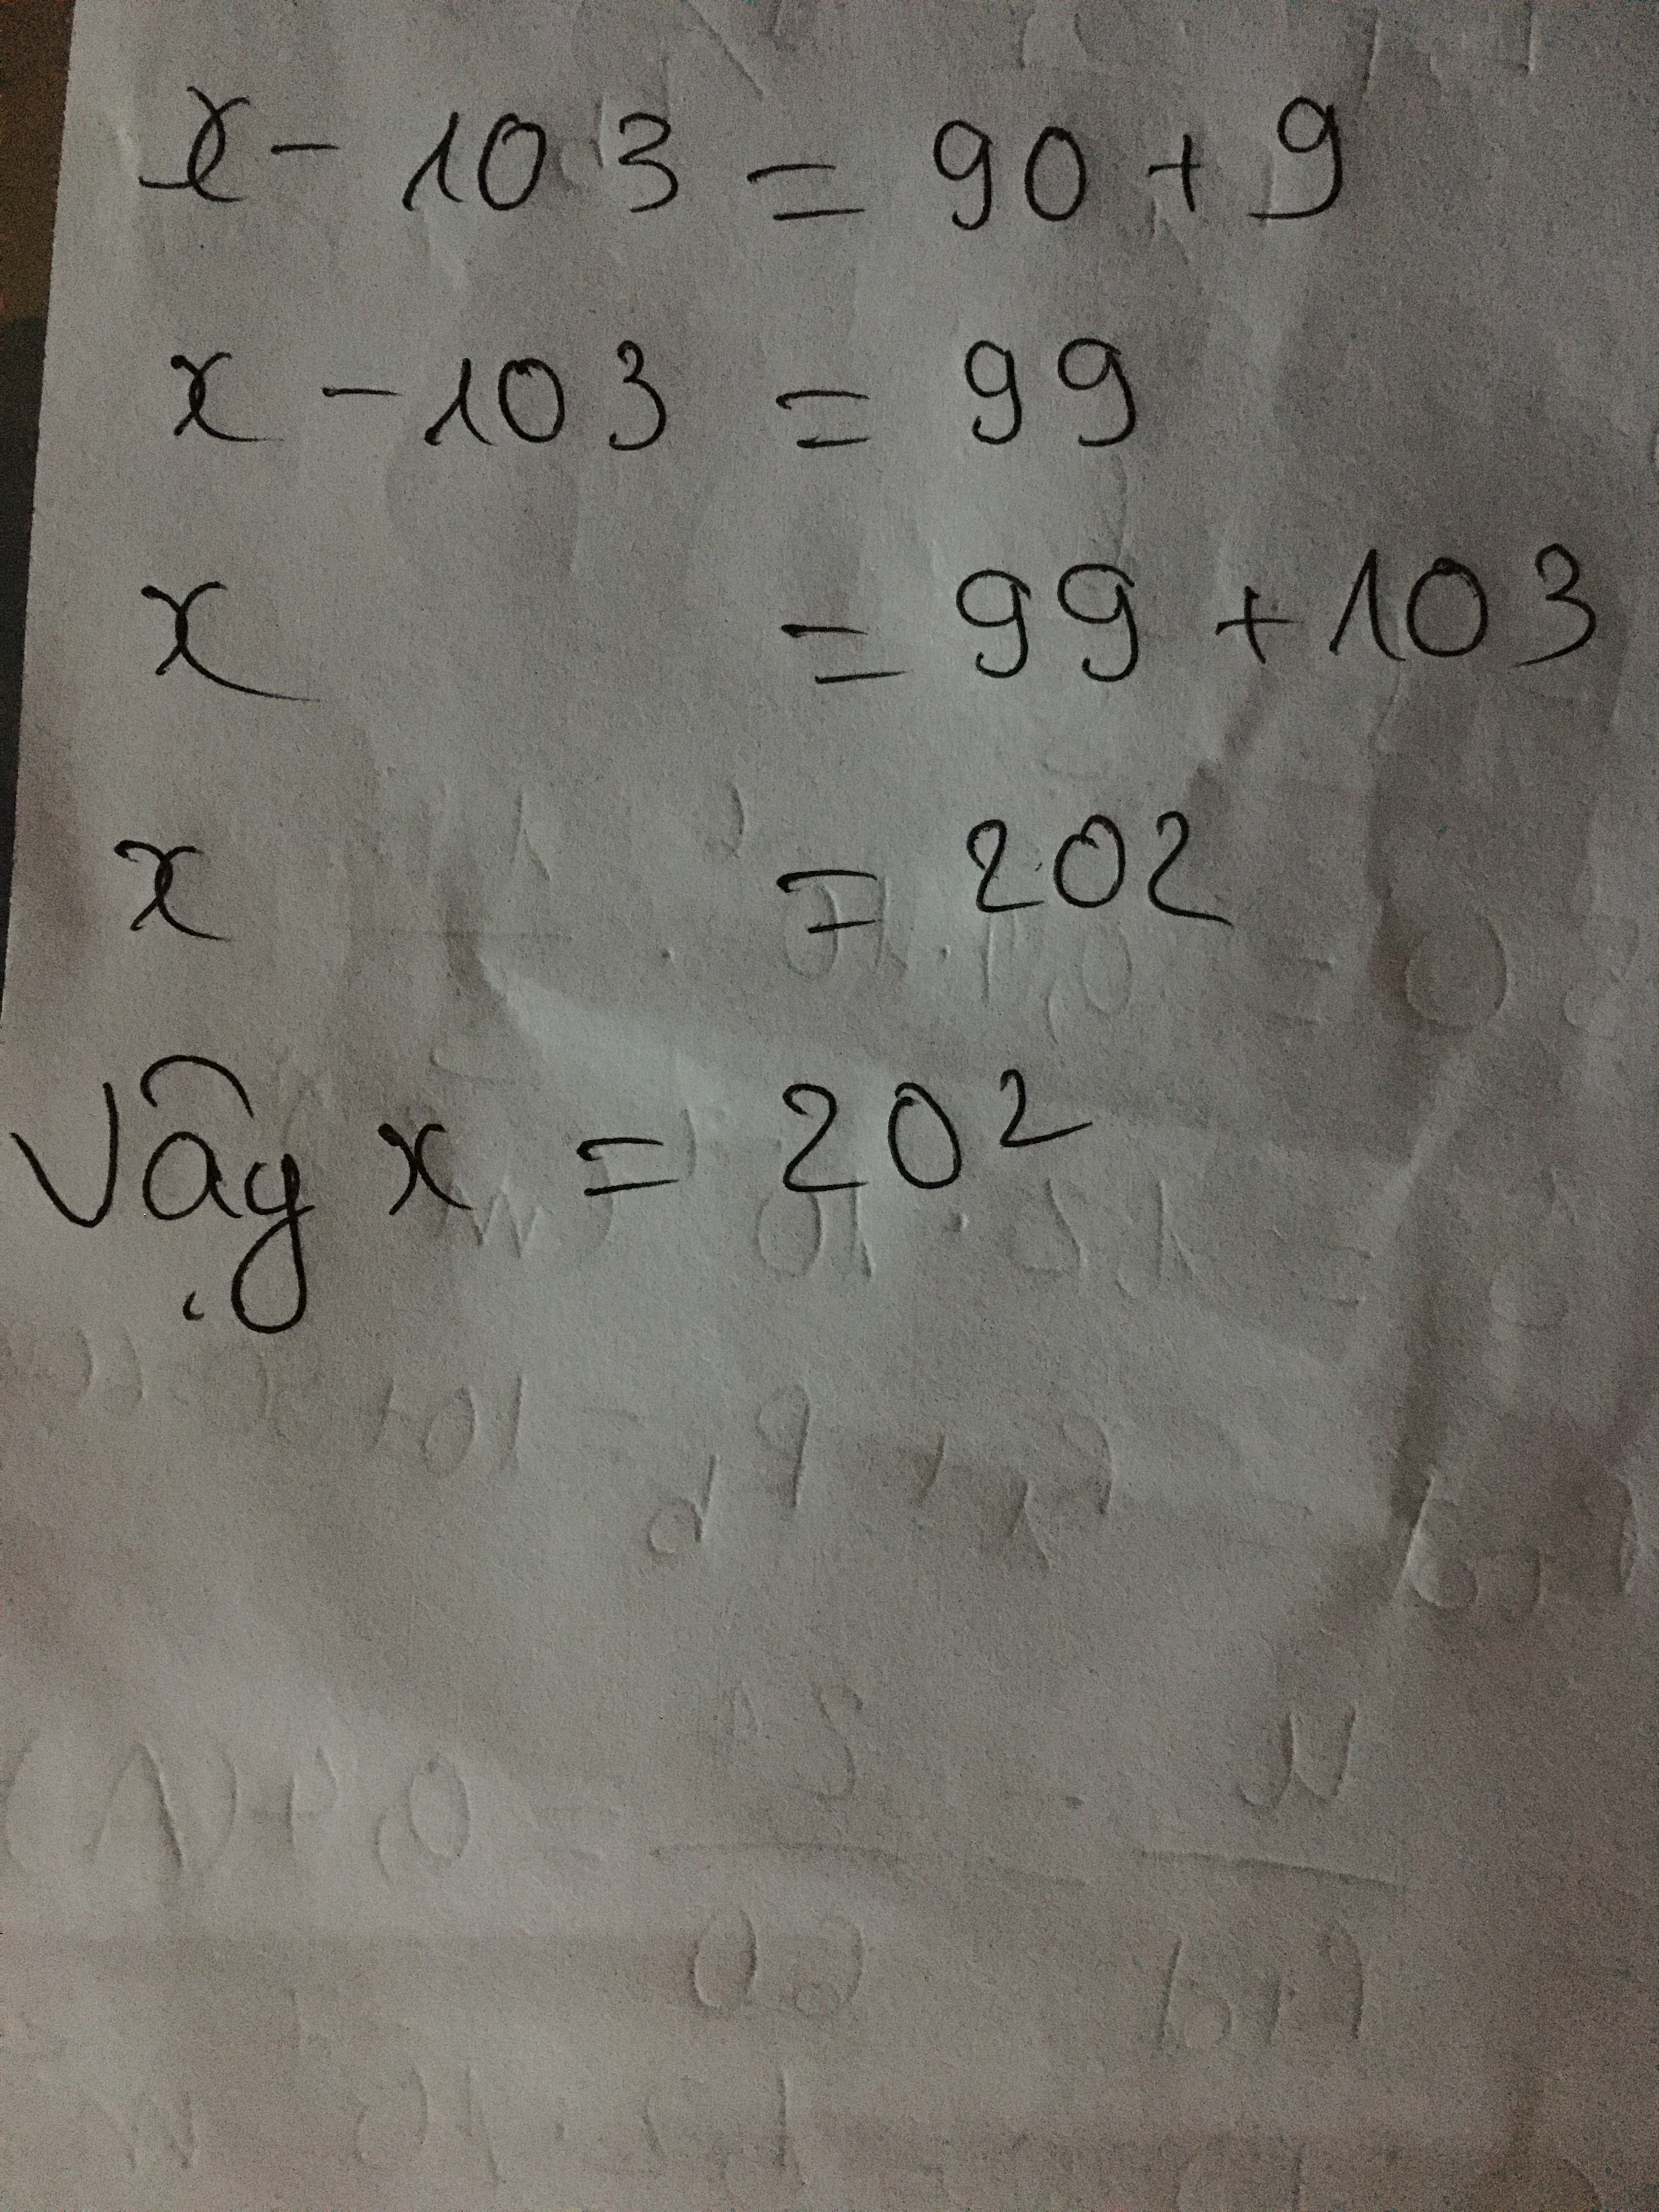 x - 103 = 90 + 9
x - 103 = 99
x = 99 + 103
x = 202
Vậy x = 202